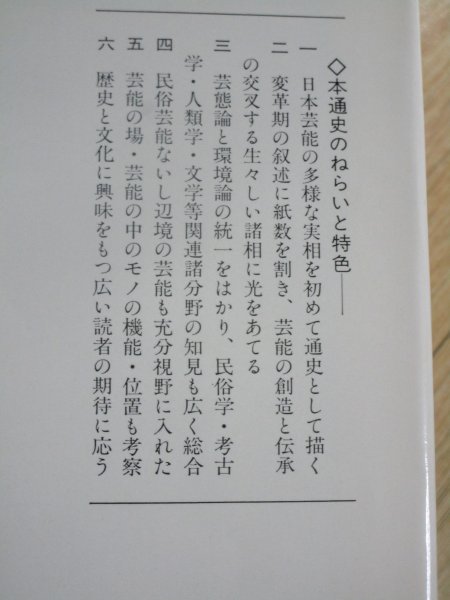 ◇本通史のねらいと特色――
一 日本芸能の多様な実相を初めて通史として描く
二 変革期の叙述に紙数を割き、芸能の創造と伝承
の交叉する生々しい諸相に光をあてる
三 芸態論と環境論の統一をはかり、民俗学・考古
学・人類学・文学等関連諸分野の知見も広く総合
四 民俗芸能ないし辺境の芸能も充分視野に入れた
五 芸能の場・芸能の中のモノの機能・位置も考察
六 歴史と文化に興味をもつ広い読者の期待に応う